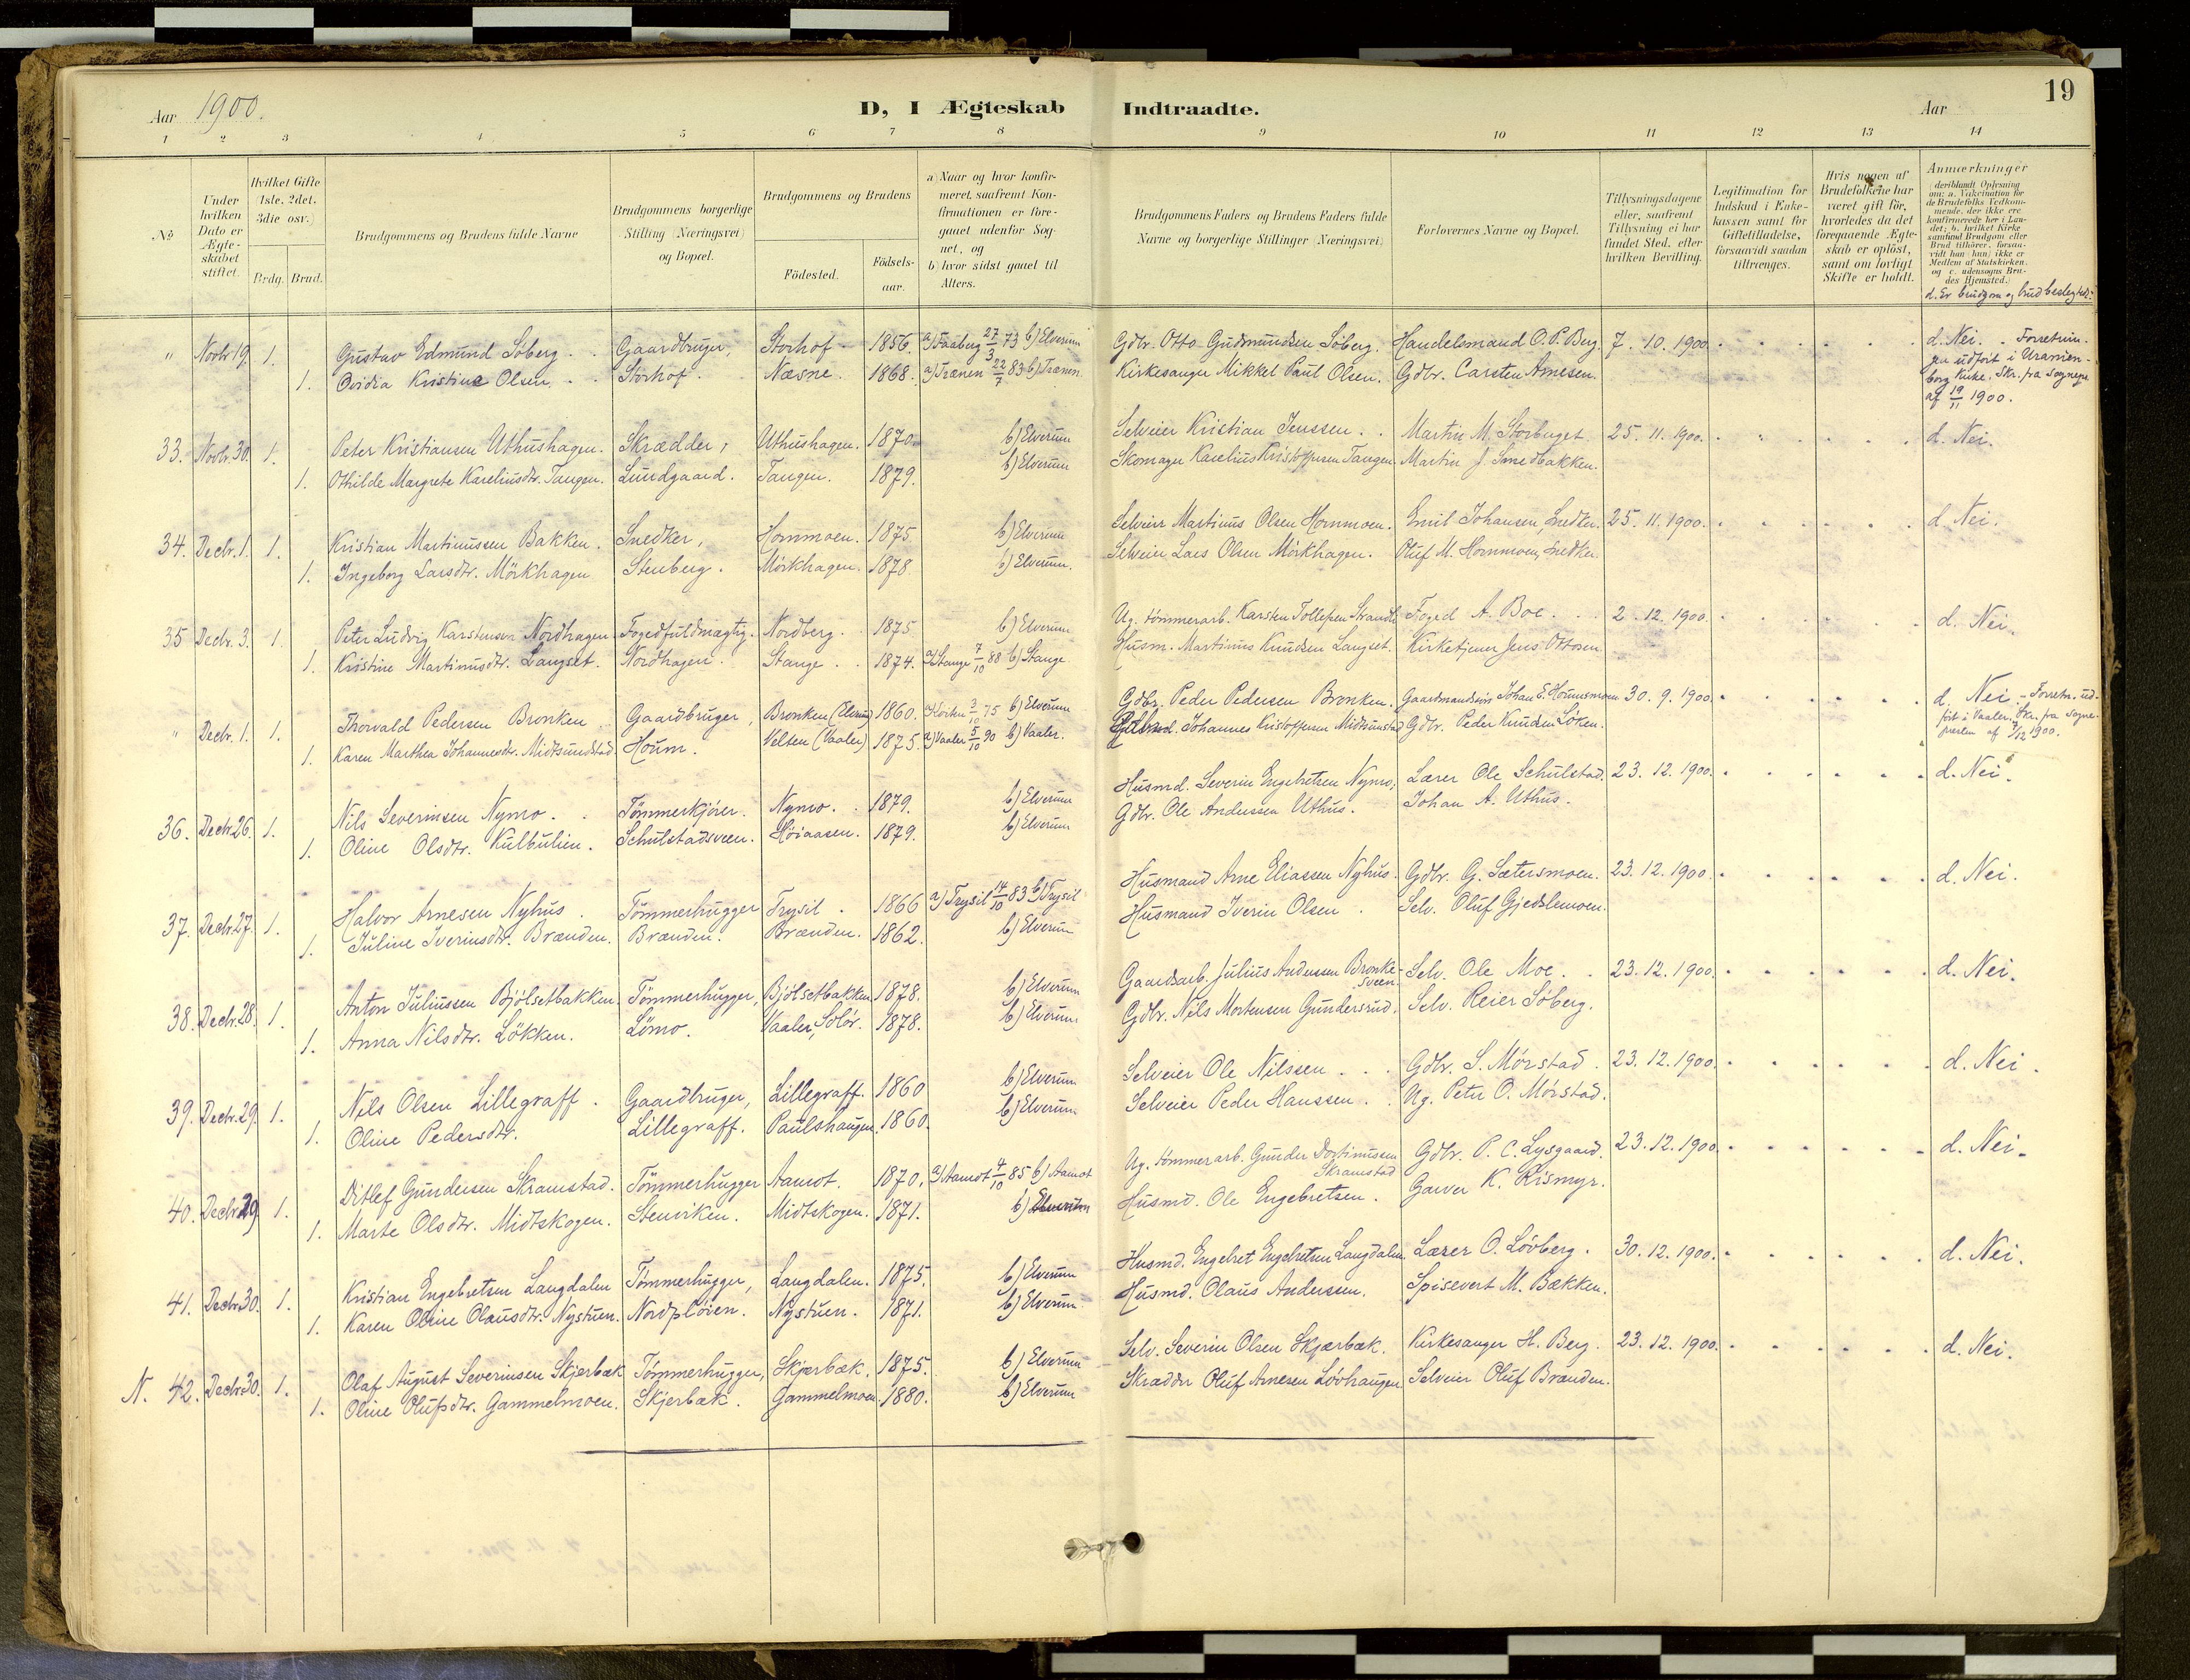 19
Aar 1900.
D, I Ægteskab Indtraadte.
Aar
1 2 3 4 5 6 7 8 9 10 11 12 13 14
№
Under hvilken Dato er Ægteskabet stiftet.
Hvilket Gifte (1ste, 2det, 3die osv.)
Brdg. Brud.
Brudgommens og Brudens fulde Navne
Brudgommens borgerlige Stilling (Næringsvei) og Bopæl.
Brudgommens og Brudens
Födested. Födselsaar.
a) Naar og hvor konfirmeret, saafremt Konfirmationen er foregaaet udenfor Sognet, og
b) hvor sidst gaaet til Alters.
Brudgommens Faders og Brudens Faders fulde Navne og borgerlige Stillinger (Næringsvei)
Forlovernes Navne og Bopæl.
Tillysningsdagene eller, saafremt Tillysning ei har fundet Sted, efter hvilken Bevilling.
Legitimation for Indskud i Enkekassen samt for Giftetilladelse, forsaavidt saadan tiltrænges.
Hvis nogen af Brudefolkene har været gift før, hvorledes da det foregaaende Ægteskab er oplöst, samt om lovligt Skifte er holdt.
Anmærkninger (deriblandt Oplysning om: a. Vakcination for de Brudefolks Vedkommende, der ikke ere konfirmerede her i Landet; b. hvilket Kirkesamfund Brudgom eller Brud tilhörer, forsaavidt han (hun) ikke er Medlem af Statskirken, og c. udensogns Brudes Hjemsted.)
d. Er brudgom og brud beslegtede?
" Novbr 19. 1. Gustav Edmund Söberg . . Gaardbruger, Storhof 1856. a) Faaberg 27/3 73 b) Elverum Gdbr. Otto Gudmundsen Söberg. Handelsmand O. P. Berg. 7. 10. 1900. d. Nei. - Forretningen udført i Uranienborg Kirke. Skr. fra Sognepr. af 19/11 1900.
1. Ovidia Kristine Olsen . . Storhof. Næsne. 1868. a) Trænen 22/7 83 b) Trænen Kirkesanger Mikkel Paul Olsen. Gdbr. Carsten Arnesen.
33. Novbr. 30. 1. Peter Kristiansen Uthushagen. Skrædder, Uthushagen. 1870. b) Elverum Selveier Kristian Jenssen . . Martin M. Storbuget. 25. 11. 1900. d. Nei.
1. Othilde Margrete Kareliusdtr. Tangen. Lundgaard. Tangen. 1879. b) Elverum Skomager Karelius Kristoffersen Tangen. Martin J. Smedbakken.
34. Decbr. 1. 1. Kristian Martinussen Bakken. Snedker, Hornmoen. 1875. b) Elverum Selveier Martinus Olsen Hornmoen. Emil Johansen, Snedker. 25. 11. 1900. d. Nei.
1. Ingeborg Larsdtr. Mörkhagen Stenberg. Mörkhagen. 1878. b) Elverum. Selveier Lars Olsen Mörkhagen. Oluf M. Hornmoen, Snedker.
35 Decbr. 3. 1. Peter Ludvig Karstensen Nordhagen Fogedfuldmægtig. Nordberg. 1875. b) Elverum Ug. tømmerarb. Karsten Tollefsen Foged A. Boe. 2. 12. 1900. d. Nei.
1. Kristine Martinusdtr. Langset. Nordhagen. Stange . . 1874. a) Stange 7/10 88 b) Stange Husm. Martinus Knudsen Langset. Kirketjener Jens Ottosen
" Decbr. 1. 1. Thorvald Pedersen Bronken . Gaardbruger, Bronken (Elverum) 1860. 3/10 75 b) Elverum Gdbr. Peder Pedersen Bronken. Gaardmandssön Johan E. 30. 9. 1900. d. Nei. - Forretn. udført i Vaaler. Skr. fra Sognepresten af 1/12 1900.
1. Karen Marthea Johannesdtr. Midtsundstad Houm. Velten (Vaaler) 1875. a) Vaaler 5/10 90 b) Vaaler. Johannes Kristoffersen Midtsundstad Gdbr. Peder Knudsen Löken.
36. Decbr. 26. 1. Nils Severinsen Nymo. . Tömmerkjörer. Nymo. . 1879. b) Elverum Husmd. Severin Engebretsen Nymo, Lærer Ole Schulstad. 23. 12. 1900. d. Nei.
1. Oline Olsdtr. Kulbulien. Schulstadsveen. Höiaasen. 1879. b) Elverum Gdbr. Ole Anderssen Uthus. Johan A. Uthus.
37. Decbr. 27. 1. Halvor Arnesen Nyhus. Tömmerhugger Trysil . 1866 a) Trysil 14/10 83 b) Trysil Husmand Arne Eliassen Nyhus. Gdbr. G. Sætersmoen. 23. 12. 1900. d. Nei.
1. Juline Iverinsdtr. Brænden. Brænden. Brænden. 1862. b) Elverum Husmand Iverin Olsen . Selv. Oluf Gjedslemoen.
38. Decbr. 28. 1. Anton Juliussen Bjölsetbakken. Tömmerhugger, Bjölsetbakken 1878. b) Elverum Gaardsarb. Julius Anderssen Bronkesveen. Selv. Ole Moe. . 23. 12. 1900. d. Nei.
1. Anna Nilsdtr. Lökken. Lömo. Vaaler, Solör. 1878. b) Elverum Gdbr. Nils Mortensen Gundersrud. Selv. Reier Söberg.
39. Decbr. 29. 1. Nils Olsen Lillegraff. Gaardbruger, Lillegraff. 1860 b) Elverum Selveier Ole Nilssen . . . Gdbr. S. Mörstad. 23. 12. 1900. d. Nei.
1. Oline Pedersdtr. Lillegraff. Paulshaugen. 1860. b) Elverum Selveier Peder Hanssen . . Ug. Peter O. Mörstad.
40. Decbr. 29. 1. Ditlef Gundersen Skramstad. Tömmerhugger Aamot. 1870. a) Aamot 4/10 85 b) Aamot Ug. tömmerarb. Gunder Skramstad Gdbr. P. C. Lysgaard. 23. 12. 1900. d. Nei.
1. Marte Olsdtr. Midtskogen. Stenviken. Midtskogen. 1871. b) Elverum Husmd. Ole Engebretsen. Garver K. Rismyr.
41. Decbr. 30. 1. Kristian Engebretsen Langdalen Tömmerhugger, Langdalen. 1875. b) Elverum Husmd. Engebret Engebretsen Langdalen. Lærer O. Lövberg. 30. 12. 1900. d. Nei.
1. Karen Oline Olausdtr. Nystuen. Nordplöien. Nystuen. 1871. b) Elverum Husmd. Olaus Anderssen. Spisevert M. Bækken.
N. 42. Decbr. 30. 1. Olaf August Severinsen Skjerbæk Tömmerhugger, Skjærbæk. 1875. b) Elverum Selv. Severin Olsen Skjærbæk. Kirkesanger H. Berg. 23. 12. 1900. d. Nei.
1. Oline Olufsdtr. Gammelmoen. Skjerbæk. Gammelmoen. 1880. b) Elverum Skrædder Oluf Arnesen Lövhaugen Selveier Oluf Brænden.